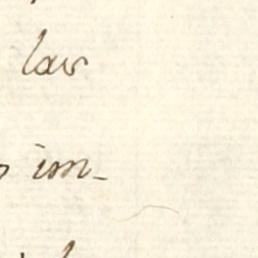 law
im-